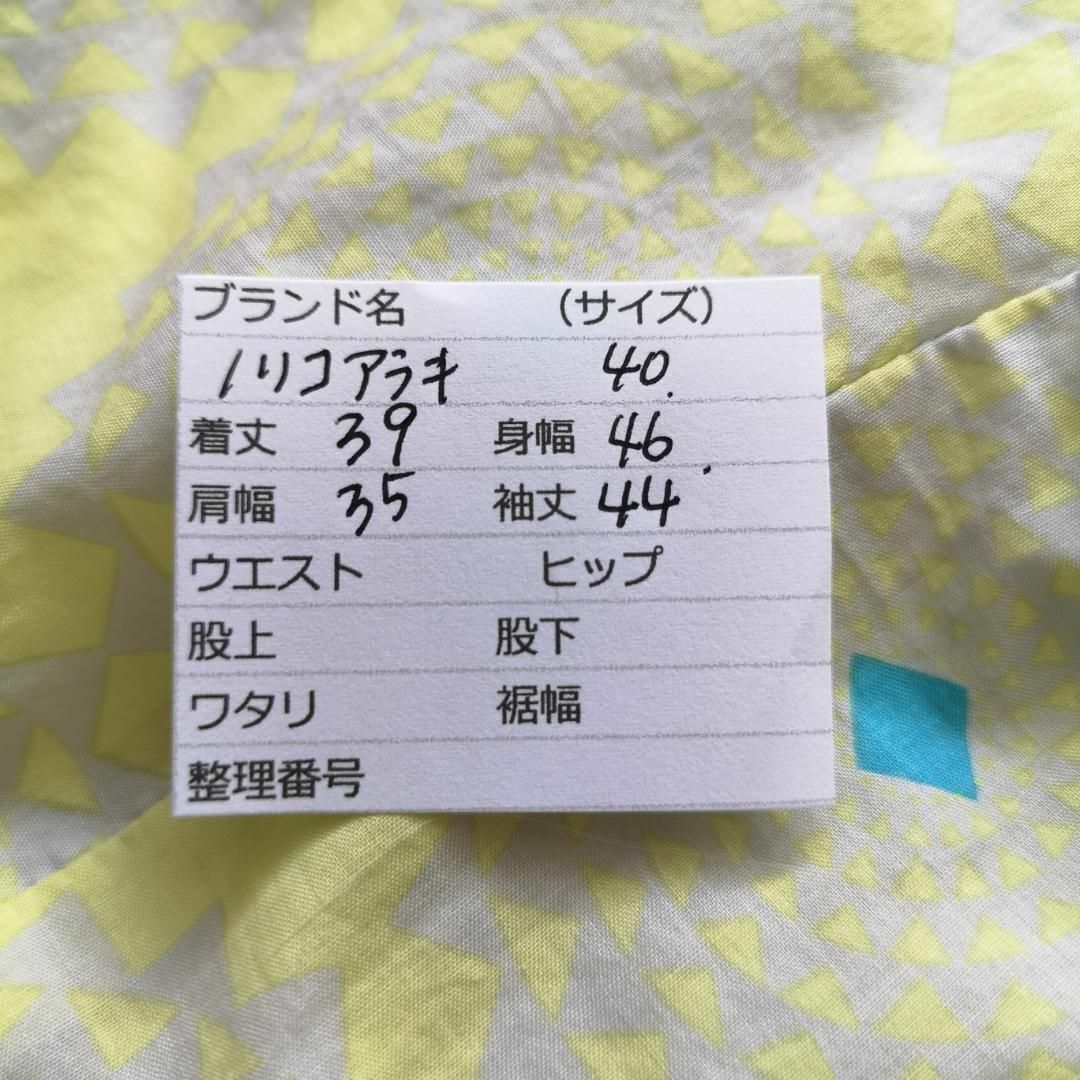 ブランド名 （サイズ）
ノリコアラキ 40.
着丈 39 身幅 46.
肩幅 35 袖丈 44
ウエスト ヒップ
股上 股下
ワタリ 裾幅
整理番号